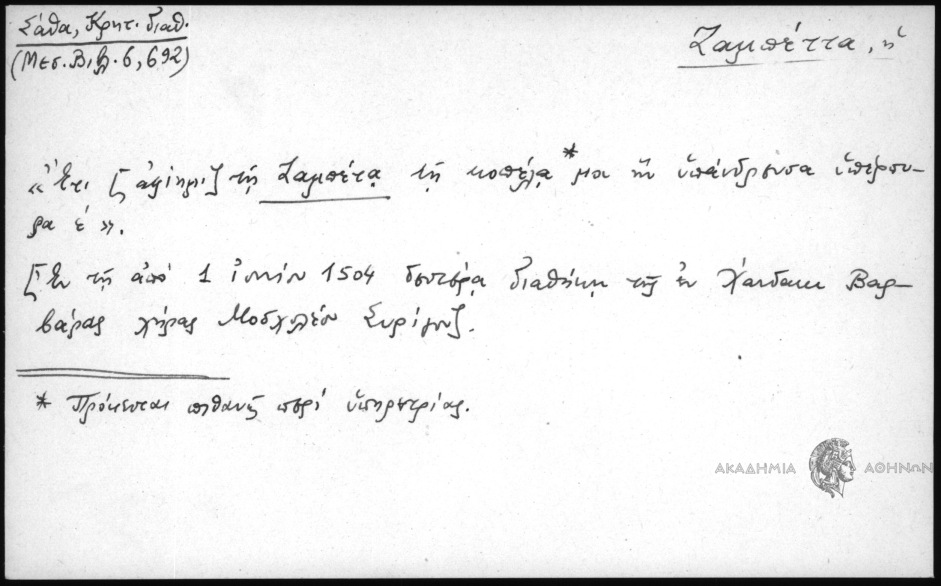 Σάθα, Κρητ. διαθ.
(Μεσ. Βιβλ. 6, 692)
Ζαμπέττα, ἡ
«Ἔτι [ἀφίημι] τῇ Ζαμπέτᾳ τῇ κοπέλᾳ* μου ἣν ὑπάνδρευσα ὑπέρπυ-
ρα έ».
[Ἐν τῇ ἀπὸ 1 ἰουνίου 1504 δευτέρᾳ διαθήκῃ τῆς ἐν Χάνδακι Βαρ-
βάρας χήρας Μοσχολέου Συρίγου].
* Πρόκειται πιθανῶς περὶ ὑπηρετρίας.
ΑΚΑΔΗΜΙΑ ΑΘΗΝΩΝ